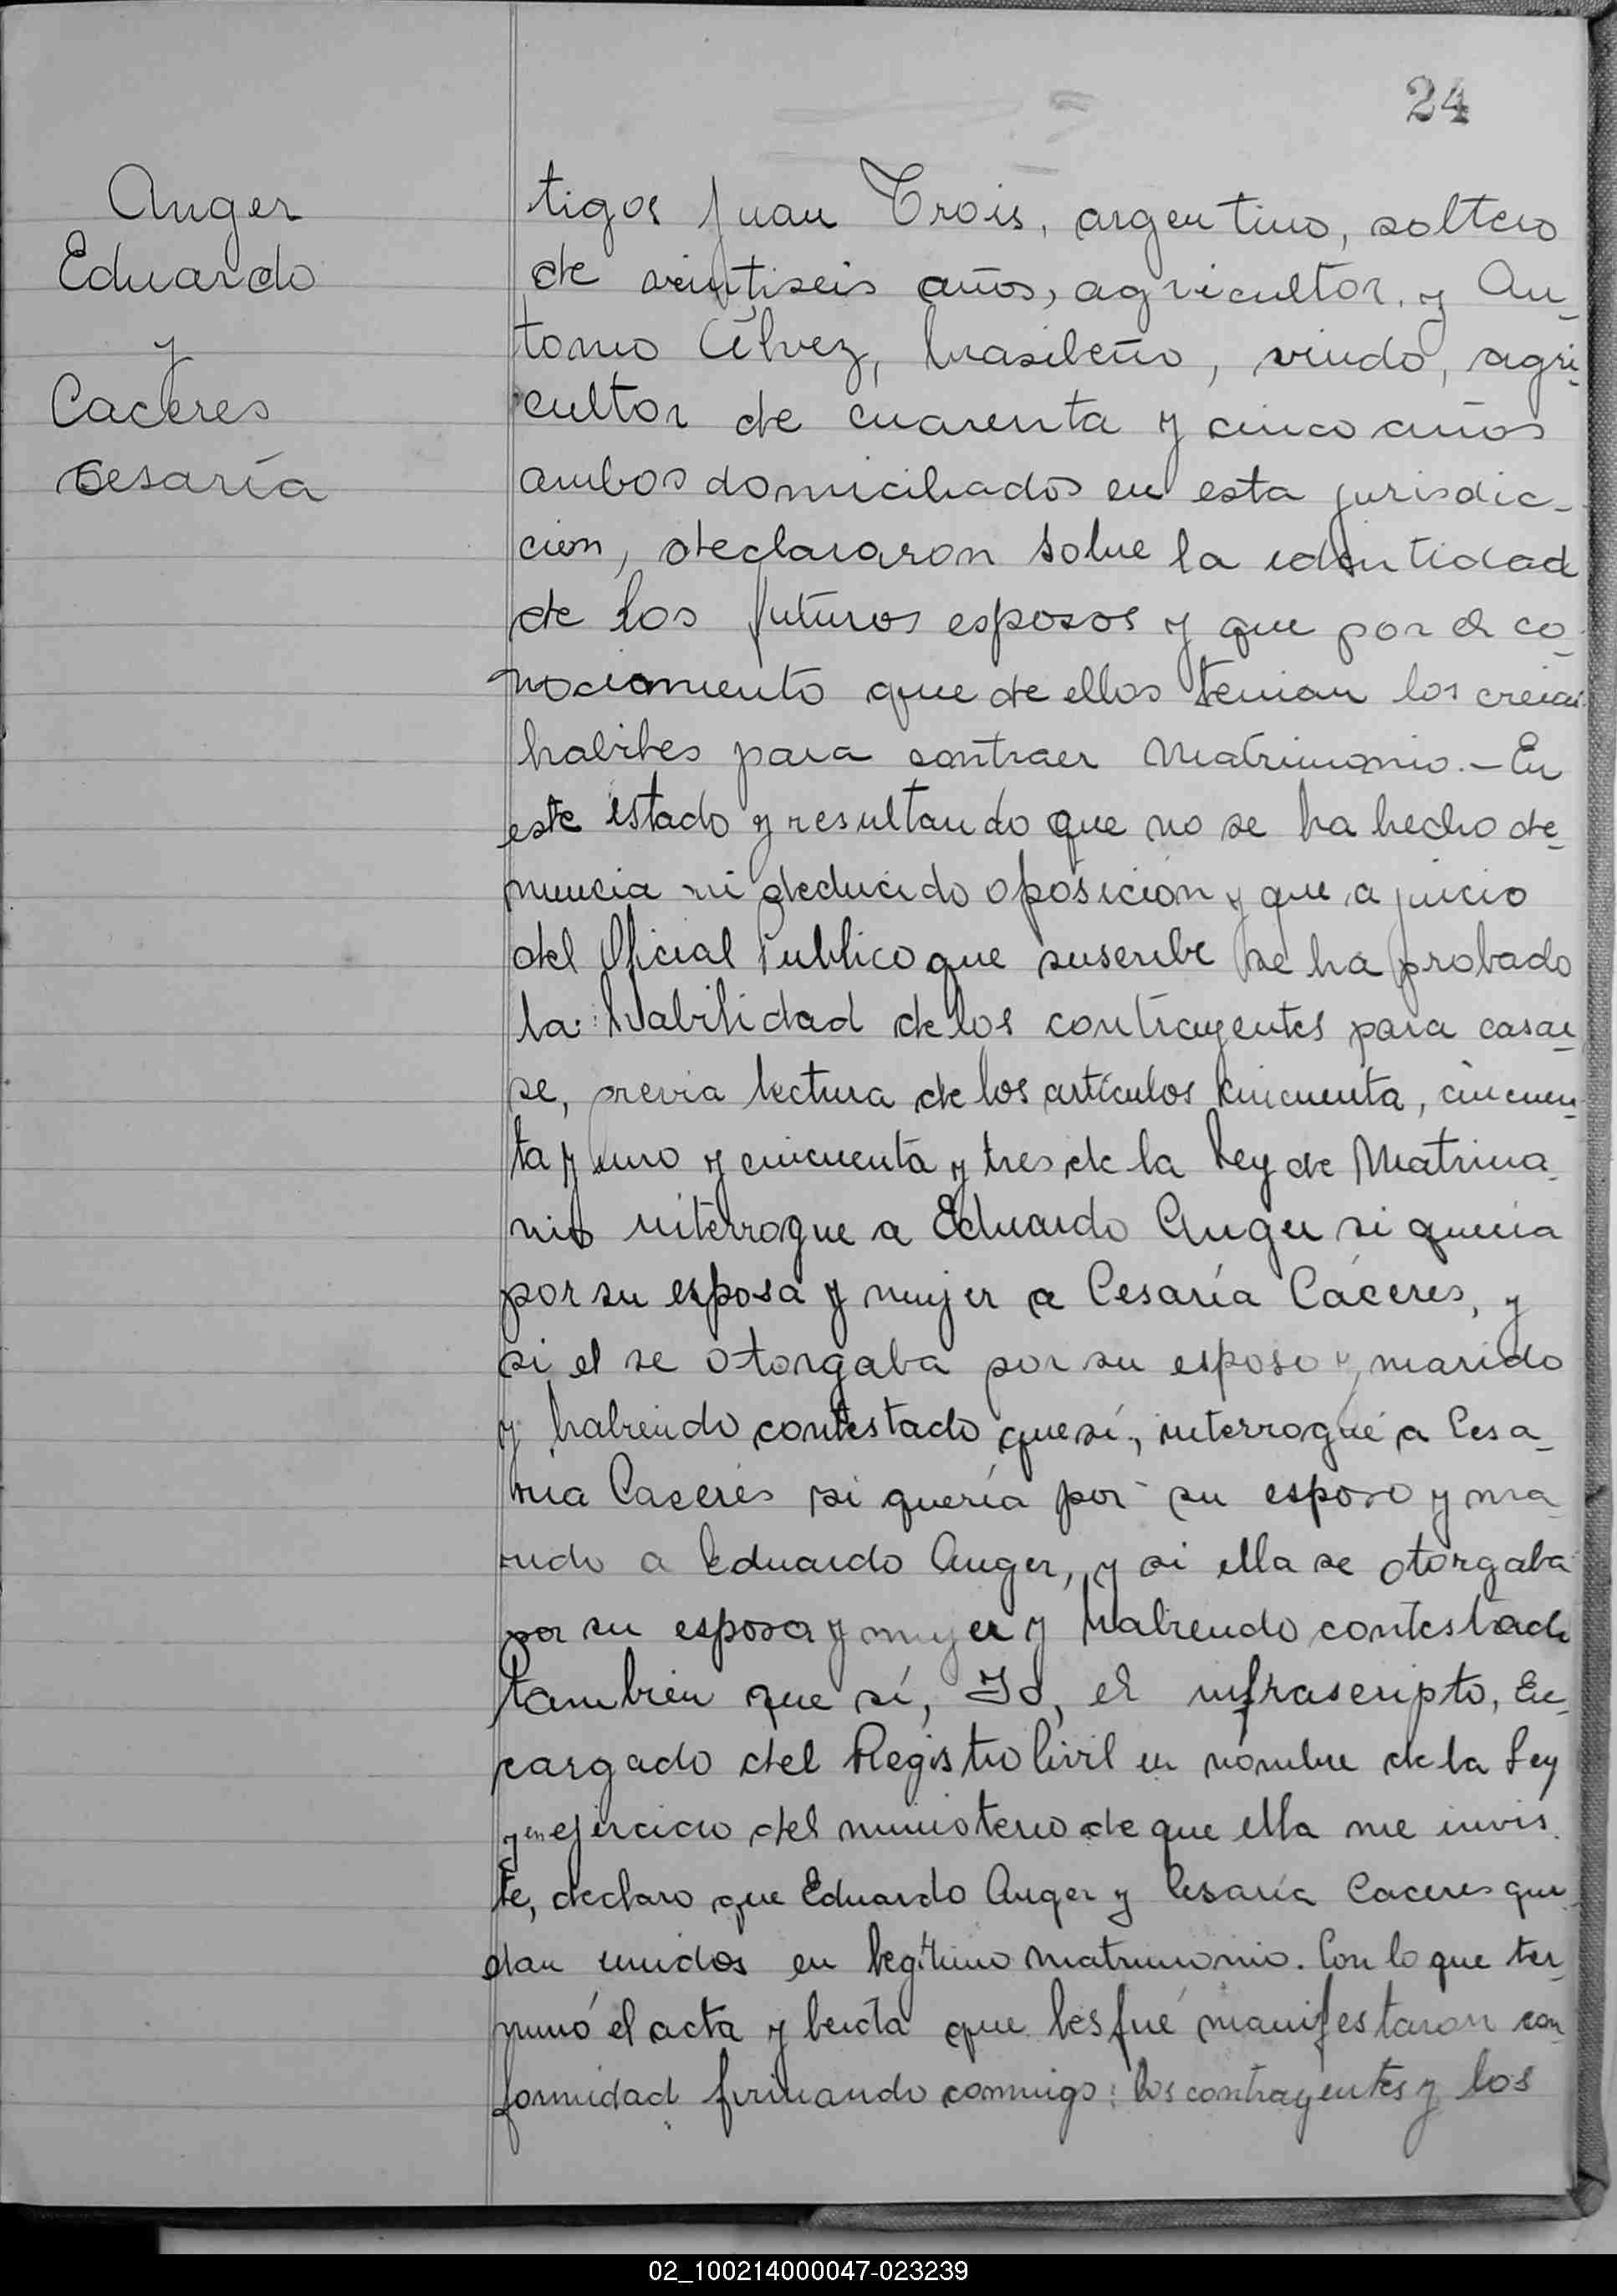 24
Anger
Eduardo
y
Caceres
Cesaría
tigos Juan Trois, argentino, soltero
de veintiseis años, agricultor, y An_
tonio Gélvez, brasileño, viudo, agri_
cultor de cuarenta y cinco años
ambos domiciliados en esta jurisdic_
cion, declararon sobre la identidad
de los futuros esposos y que por el co_
nocimiento que de ellos tenian los creian
habiles para contraer Matrimonio.- En
este estado y resultando que no se ha hecho de_
nuncia ni deducido oposición y que a juicio
del Oficial Publico que suscribe se ha probado
la habilidad de los contrayentes para casar_
se, previa lectura de los artículos cincuenta, cincuen_
ta y uno y cincuenta y tres de la Ley de Matrimo_
nio interrogue a Eduardo Anger si queria
por su esposa y mujer a Cesaría Cáceres, y
si el se otorgaba por su esposo y marido
y habiendo contestado que sí, interrogué a Cesa_
ria Caseres si quería por su esposo y ma_
rido a Eduardo Anger, y si ella se otorgaba
por su esposa y mujer y habiendo contestado
tambien que sí, Yo, el infrascripto, En_
cargado del Registro Civil en nombre de la Ley
y en ejercicio del ministerio de que ella me invis_
te, declaro que Eduardo Anger y Cesaría Caceres que_
dan unidos en legítimo matrimonio. Con lo que ter_
minó el acta y leida que les fué manifestaron con_
formidad firmando conmigo: los contrayentes y los
02_100214000047-023239